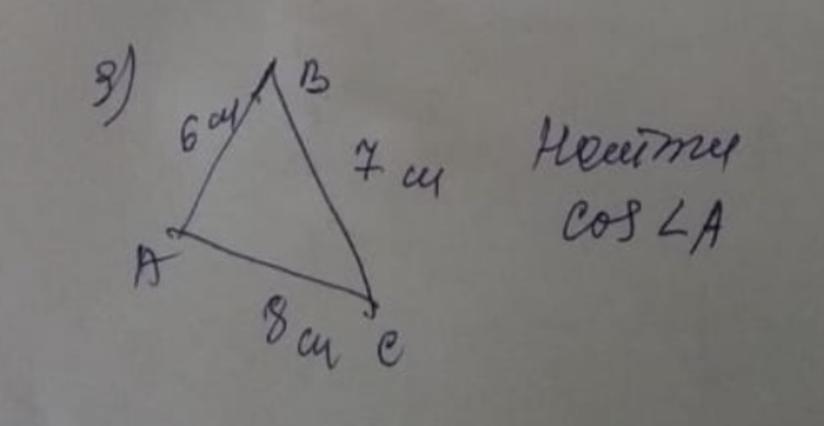 3)
B
6 см
7 см
Найти
cos ∠A
A
8 см
C